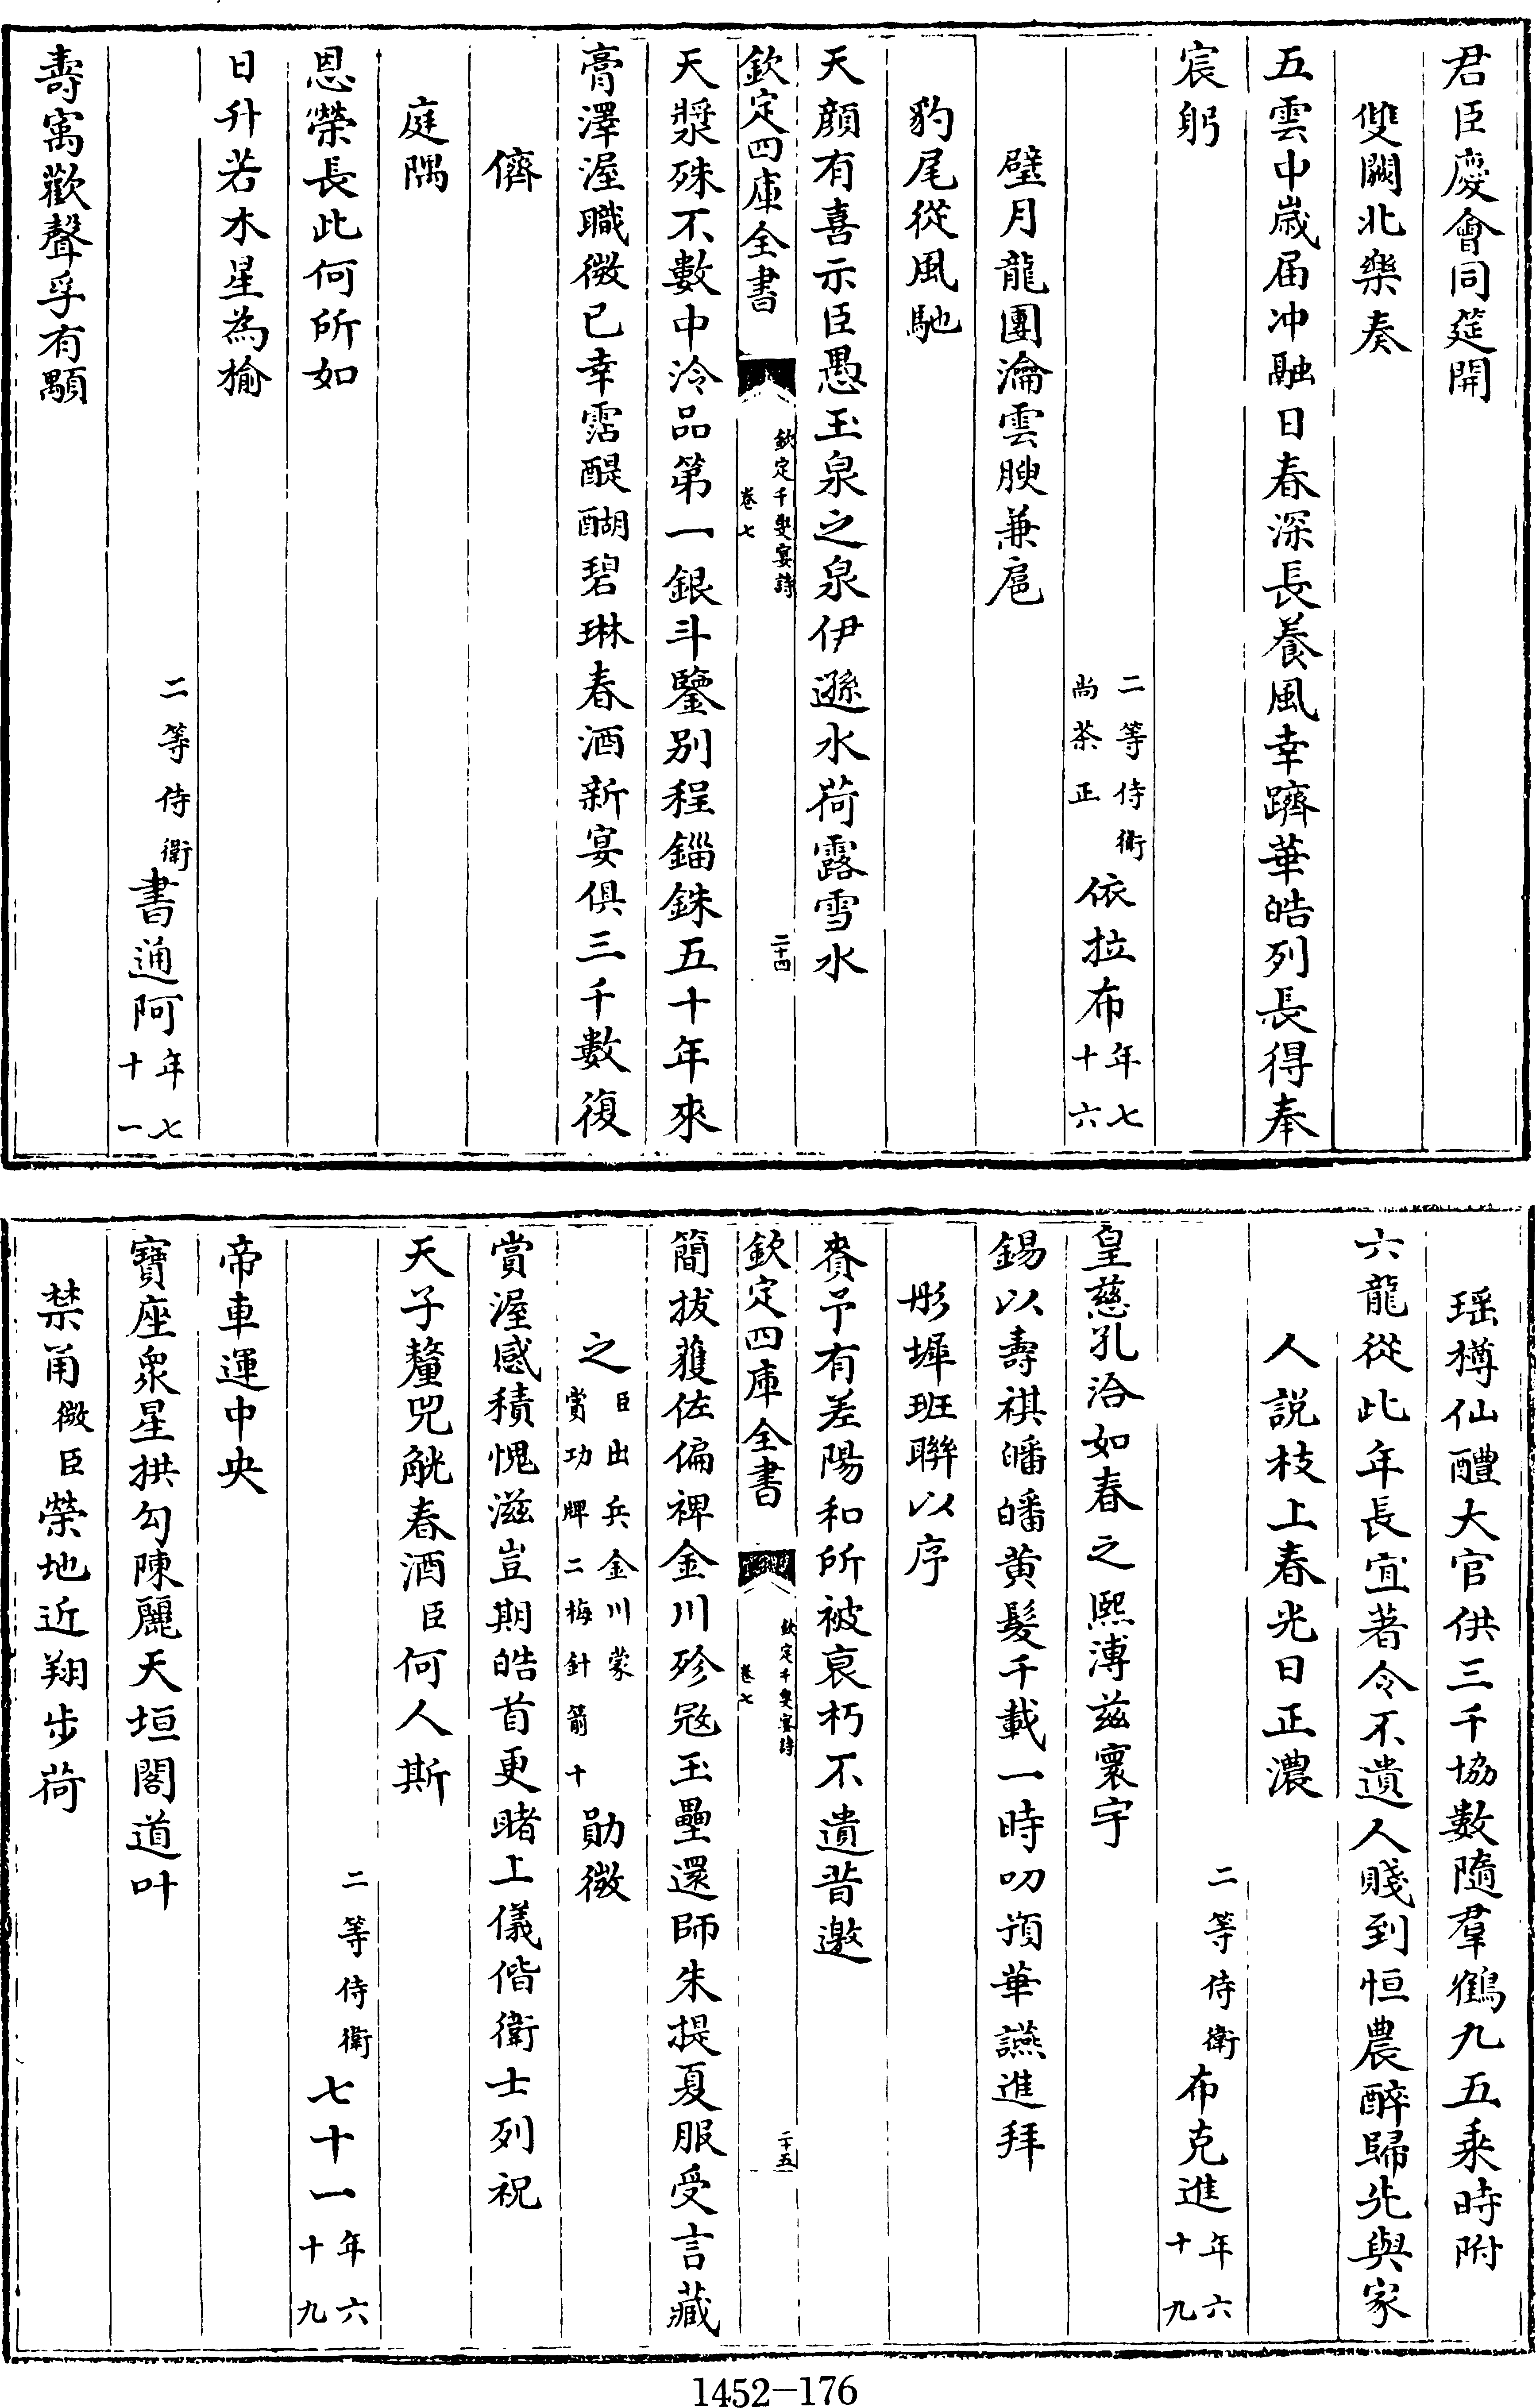 君臣慶會同筵開
雙闕北樂奏
五雲中歲届冲融日春深長養風幸躋華皓列長得奉
宸躬
二等侍衛
尚茶正
依拉布
年七
十六
璧月龍團瀹雲腴兼扈
豹尾從風馳
天顔有喜示臣愚玉泉之泉伊遜水荷露雪水
欽定四庫全書
欽定千叟宴詩
卷七
二十四
天漿殊不數中泠品第一銀斗鑒别程錙銖五十年來
膏澤渥職微已幸霑醍醐碧琳春酒新宴俱三千數復
儕
庭隅
恩榮長此何所如
日升若木星為榆
二等侍衛
書通阿
年七
十一
壽寓歡聲孚有顒
瑶樽仙醴大官供三千協數隨羣鶴九五乘時附
六龍從此年長宜著令不遺人賤到恒農醉歸兆與家
人説枝上春光日正濃
二等侍衛
布克進
年六
十九
皇慈孔洽如春之熙溥兹寰宇
錫以壽祺皤皤黄髮千載一時叨預華讌進拜
彤墀班聯以序
賚予有差陽和所被哀朽不遺昔邀
欽定四庫全書
欽定千叟宴詩
卷七
二十五
簡拔獲佐偏裨金川殄冦玉壘還師朱提夏服受言藏
之
臣出兵金川蒙
賞功牌二梅針箭十
勛微
賞渥感積愧滋豈期皓首更睹上儀偕衛士列祝
天子釐兕觥春酒臣何人斯
二等侍衛
七十一
年六
十九
帝車運中央
寶座衆星拱勾陳麗天垣閣道叶
禁甬微臣榮地近翔步荷
1452—176